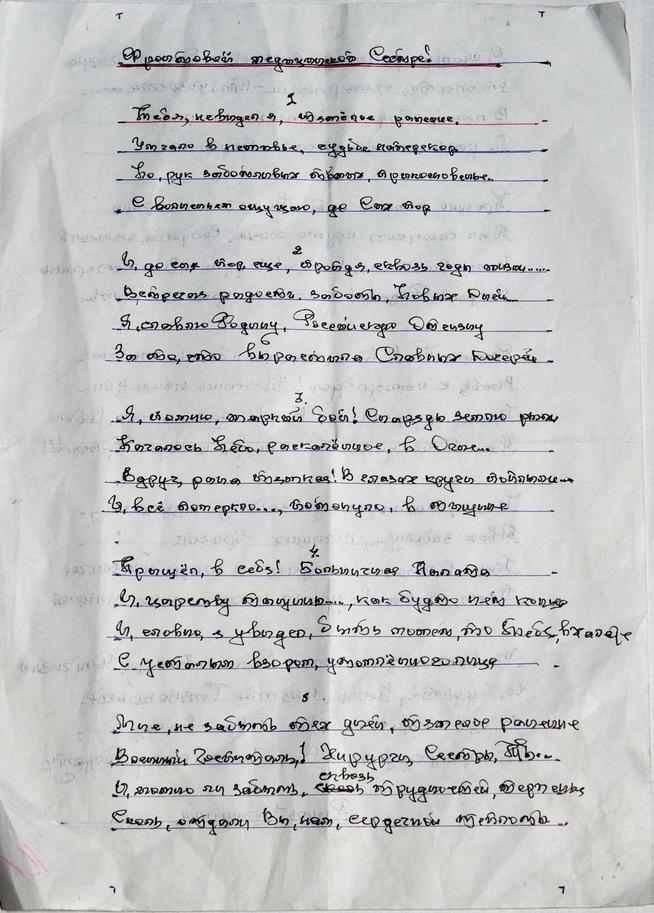 Фронтовой медицинской Сестре!
1
Тебя, невидел я, тяжёлое ранение,
Умчало в ненастье, судьбе наперекор
Но, рук заботливых твоих, прикосновенье..
С волненьем ощущаю, до Сих пор
2
И, до сих пор, еще, пройдя, сквозь годы
Встречая радости, заботы, Новых Дней...
Я, славлю Родину, Российскую Отчизну
За то, что вырастила Славных Дочерей
3.
Я, помню, жаркий бой! Снаряды землю рыли
Качалось Небо, расколотое, в Огне...
Вдруг, рана тяжкая! В глазах круги поплыли...
И, всё померкло..., потонуло, в тишине
4.
Пришёл, в себя! Больничная Палата
И, царству тишины...., как будто нет конца
И, словно, я увидел, Тебя, в халате
С усталым взором, утомлённого лица
5
Мне, не забыть тех дней, тяжелое ранение
Военный Госпиталь! Хирурги, Сестры, Ты...
И, можно ли забыть, сквозь трудностей, терпенье
Сколь, отдали Вы, нам, сердечной теплоты..